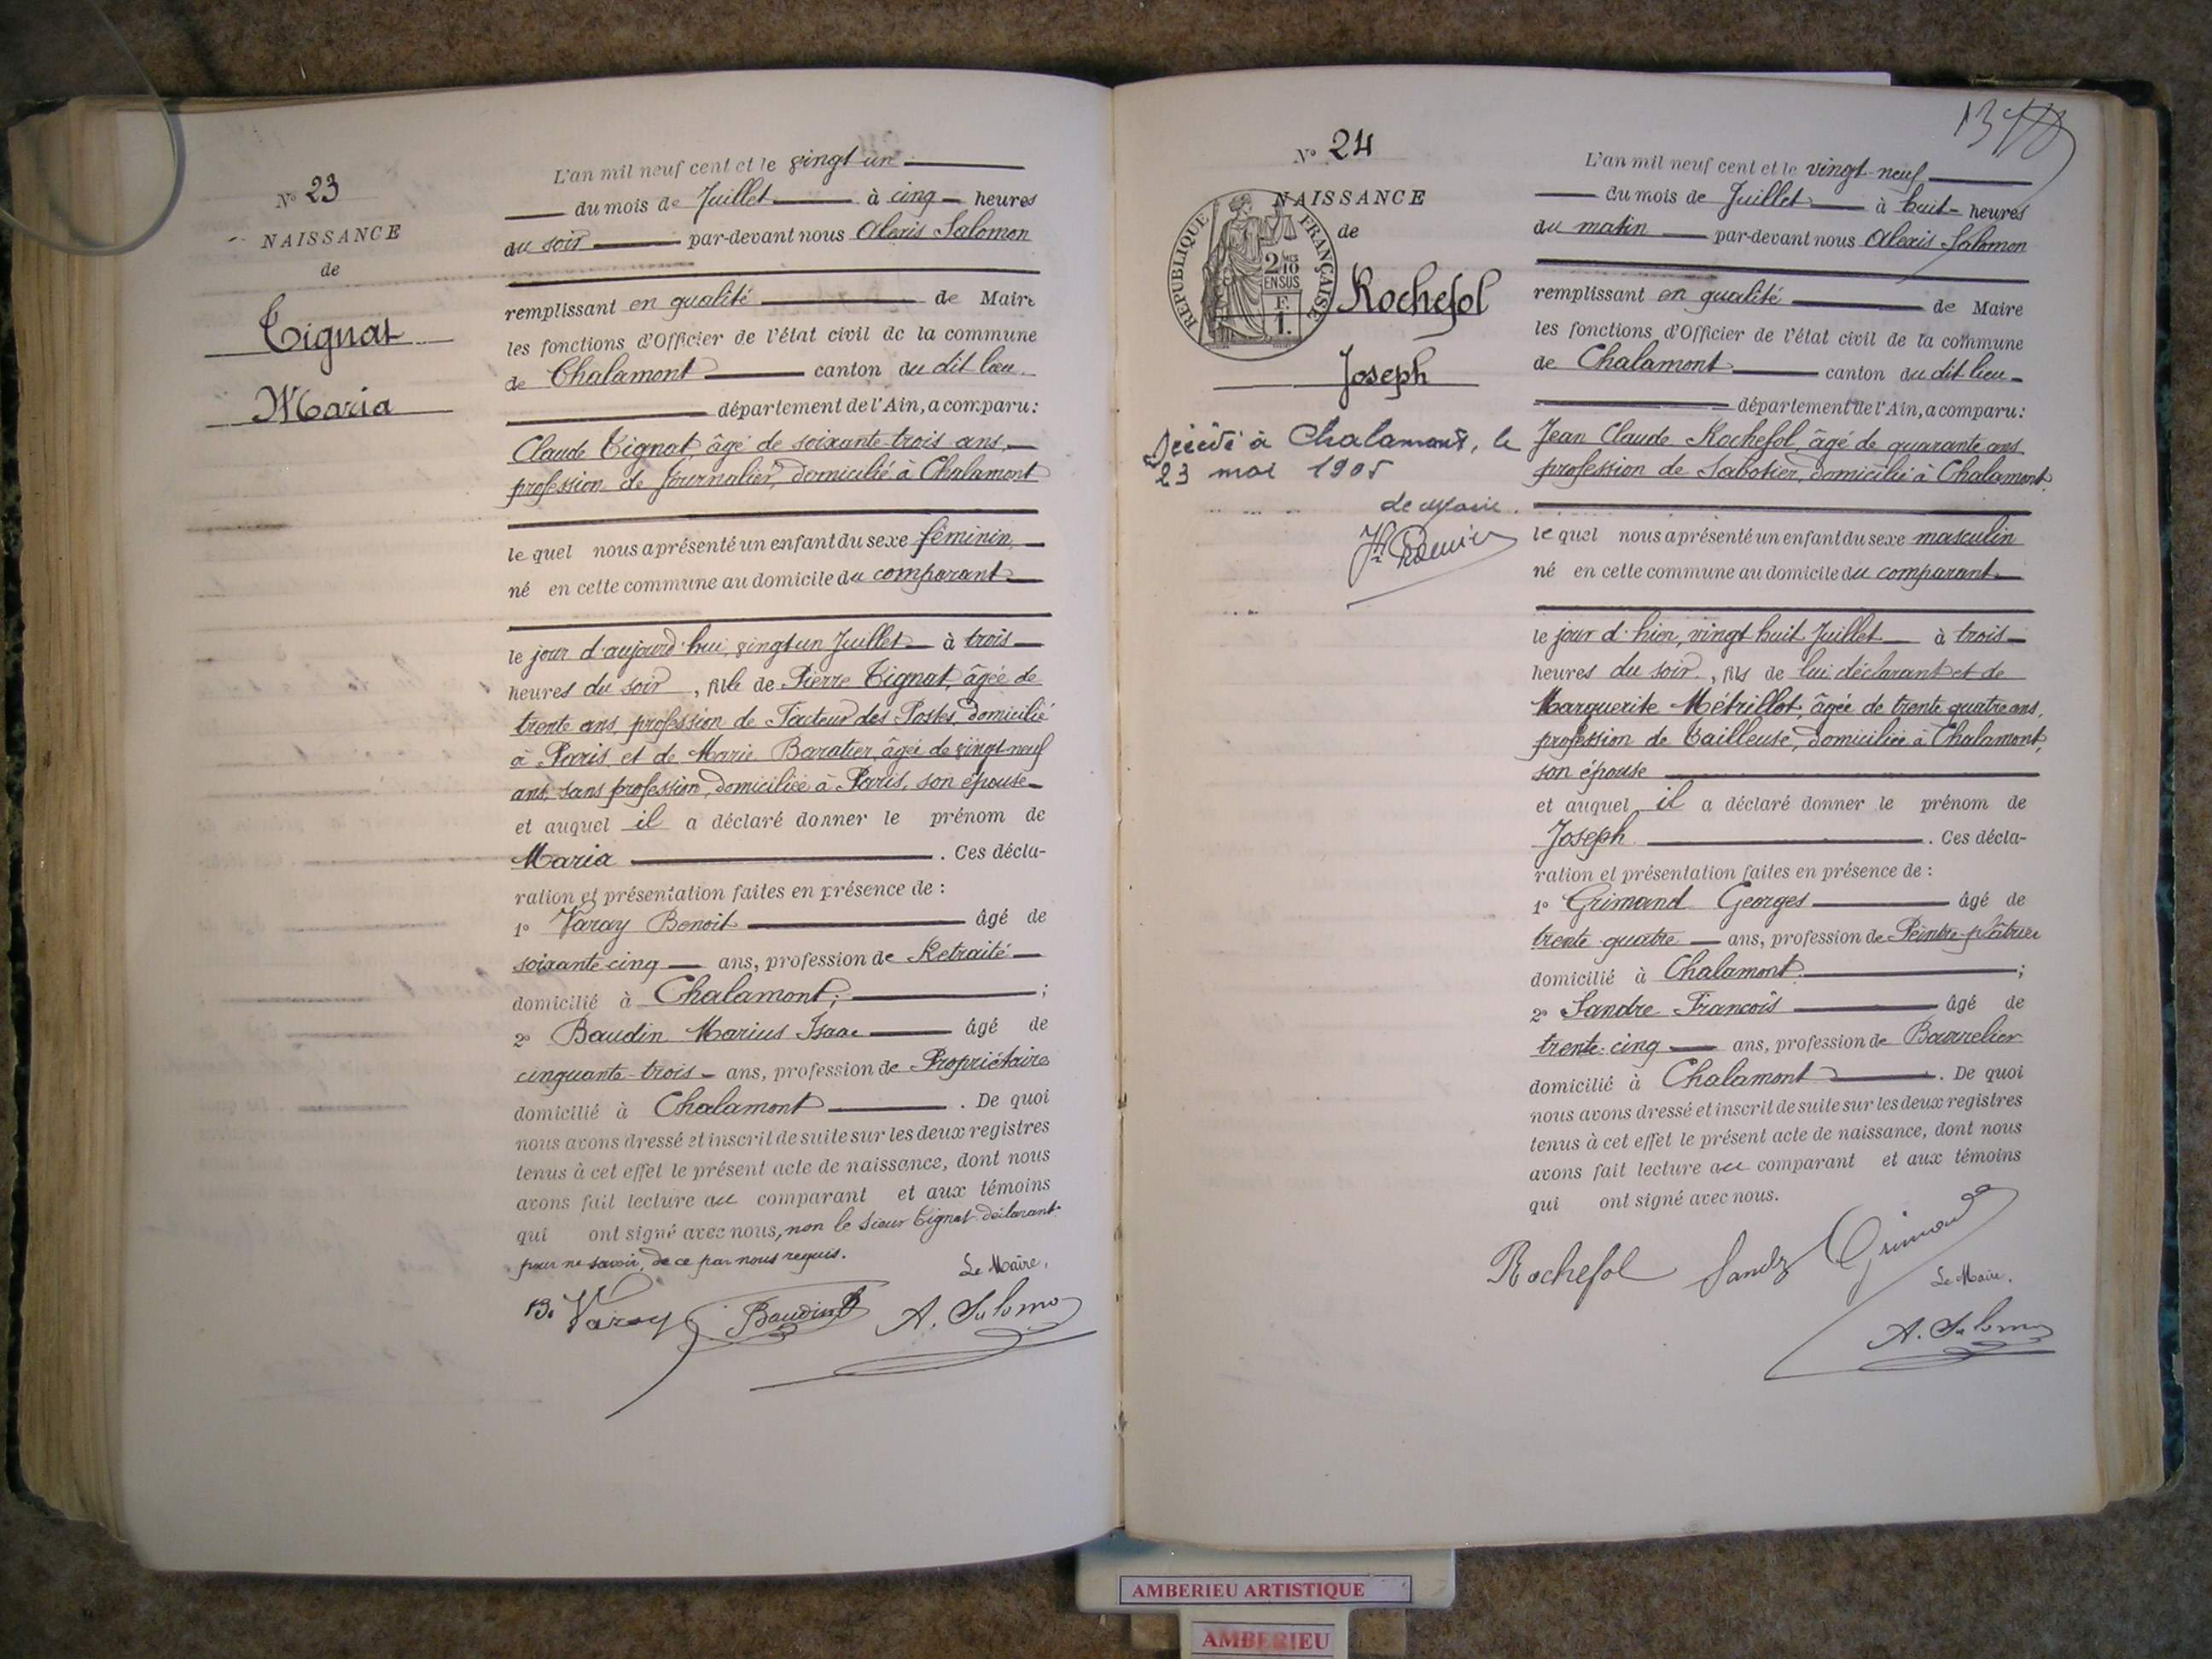 N° 23
NAISSANCE
de
Tignat
Maria
L'an mil neuf cent et le vingt un
du mois de Juillet à cinq heures
du soir par-devant nous Alexis Salomon
remplissant en qualité de Maire
les fonctions d'Officier de l'état civil de la commune
de Chalamont canton du dit lieu
département de l'Ain, a comparu:
Claude Tignat, âgé de soixante-trois ans,
profession de Journalier, domicilié à Chalamont
le quel nous a présenté un enfant du sexe féminin,
né en cette commune au domicile du comparant
le jour d'aujourd'hui, vingt un Juillet à trois
heures du soir, fille de Pierre Tignat, âgée de
trente ans, profession de Facteur des Postes, domicilié
à Paris et de Marie Baratier, âgée de vingt neuf
ans, sans profession, domiciliée à Paris, son épouse
et auquel il a déclaré donner le prénom de
Maria . Ces décla-
ration et présentation faites en présence de :
1° Varay Benoit âgé de
soixante-cinq ans, profession de Retraité
domicilié à Chalamont; ;
2° Baudin Marius Isaac âgé de
cinquante-trois ans, profession de Propriétaire
domicilié à Chalamont . De quoi
nous avons dressé et inscrit de suite sur les deux registres
tenus à cet effet le présent acte de naissance, dont nous
avons fait lecture au comparant et aux témoins
qui ont signé avec nous, non le sieur Tignat déclarant
pour ne savoir, de ce par nous requis.
Le Maire,
B. Varay Baudin A. Salomon
N° 24
NAISSANCE
de
RÉPUBLIQUE FRANÇAISE
2/10 MES
EN SUS
F.
1.
Rochefol
Joseph
Décédé à Chalamont, le
23 mai 1905
Le Maire.
L'an mil neuf cent et le vingt-neuf
du mois de Juillet à huit heures
du matin par-devant nous Alexis Salomon
remplissant en qualité de Maire
les fonctions d'Officier de l'état civil de la commune
de Chalamont canton du dit lieu
département de l'Ain, a comparu:
Jean Claude Rochefol, âgé de quarante ans
profession de Sabotier, domicilié à Chalamont.
le quel nous a présenté un enfant du sexe masculin
né en cette commune au domicile du comparant
le jour d'hier, vingt huit Juillet à trois
heures du soir, fils de lui déclarant et de
Marguerite Métrillot, âgée de trente quatre ans,
profession de Tailleuse, domiciliée à Chalamont,
son épouse
et auquel il a déclaré donner le prénom de
Joseph . Ces décla-
ration et présentation faites en présence de :
1° Grimand Georges âgé de
trente-quatre ans, profession de Peintre-plâtrier
domicilié à Chalamont ;
2° Sandre François âgé de
trente-cinq ans, profession de Bourrelier
domicilié à Chalamont . De quoi
nous avons dressé et inscrit de suite sur les deux registres
tenus à cet effet le présent acte de naissance, dont nous
avons fait lecture au comparant et aux témoins
qui ont signé avec nous.
Rochefol Grimand
Le Maire.
A. Salomon
AMBERIEU ARTISTIQUE
AMBERIEU